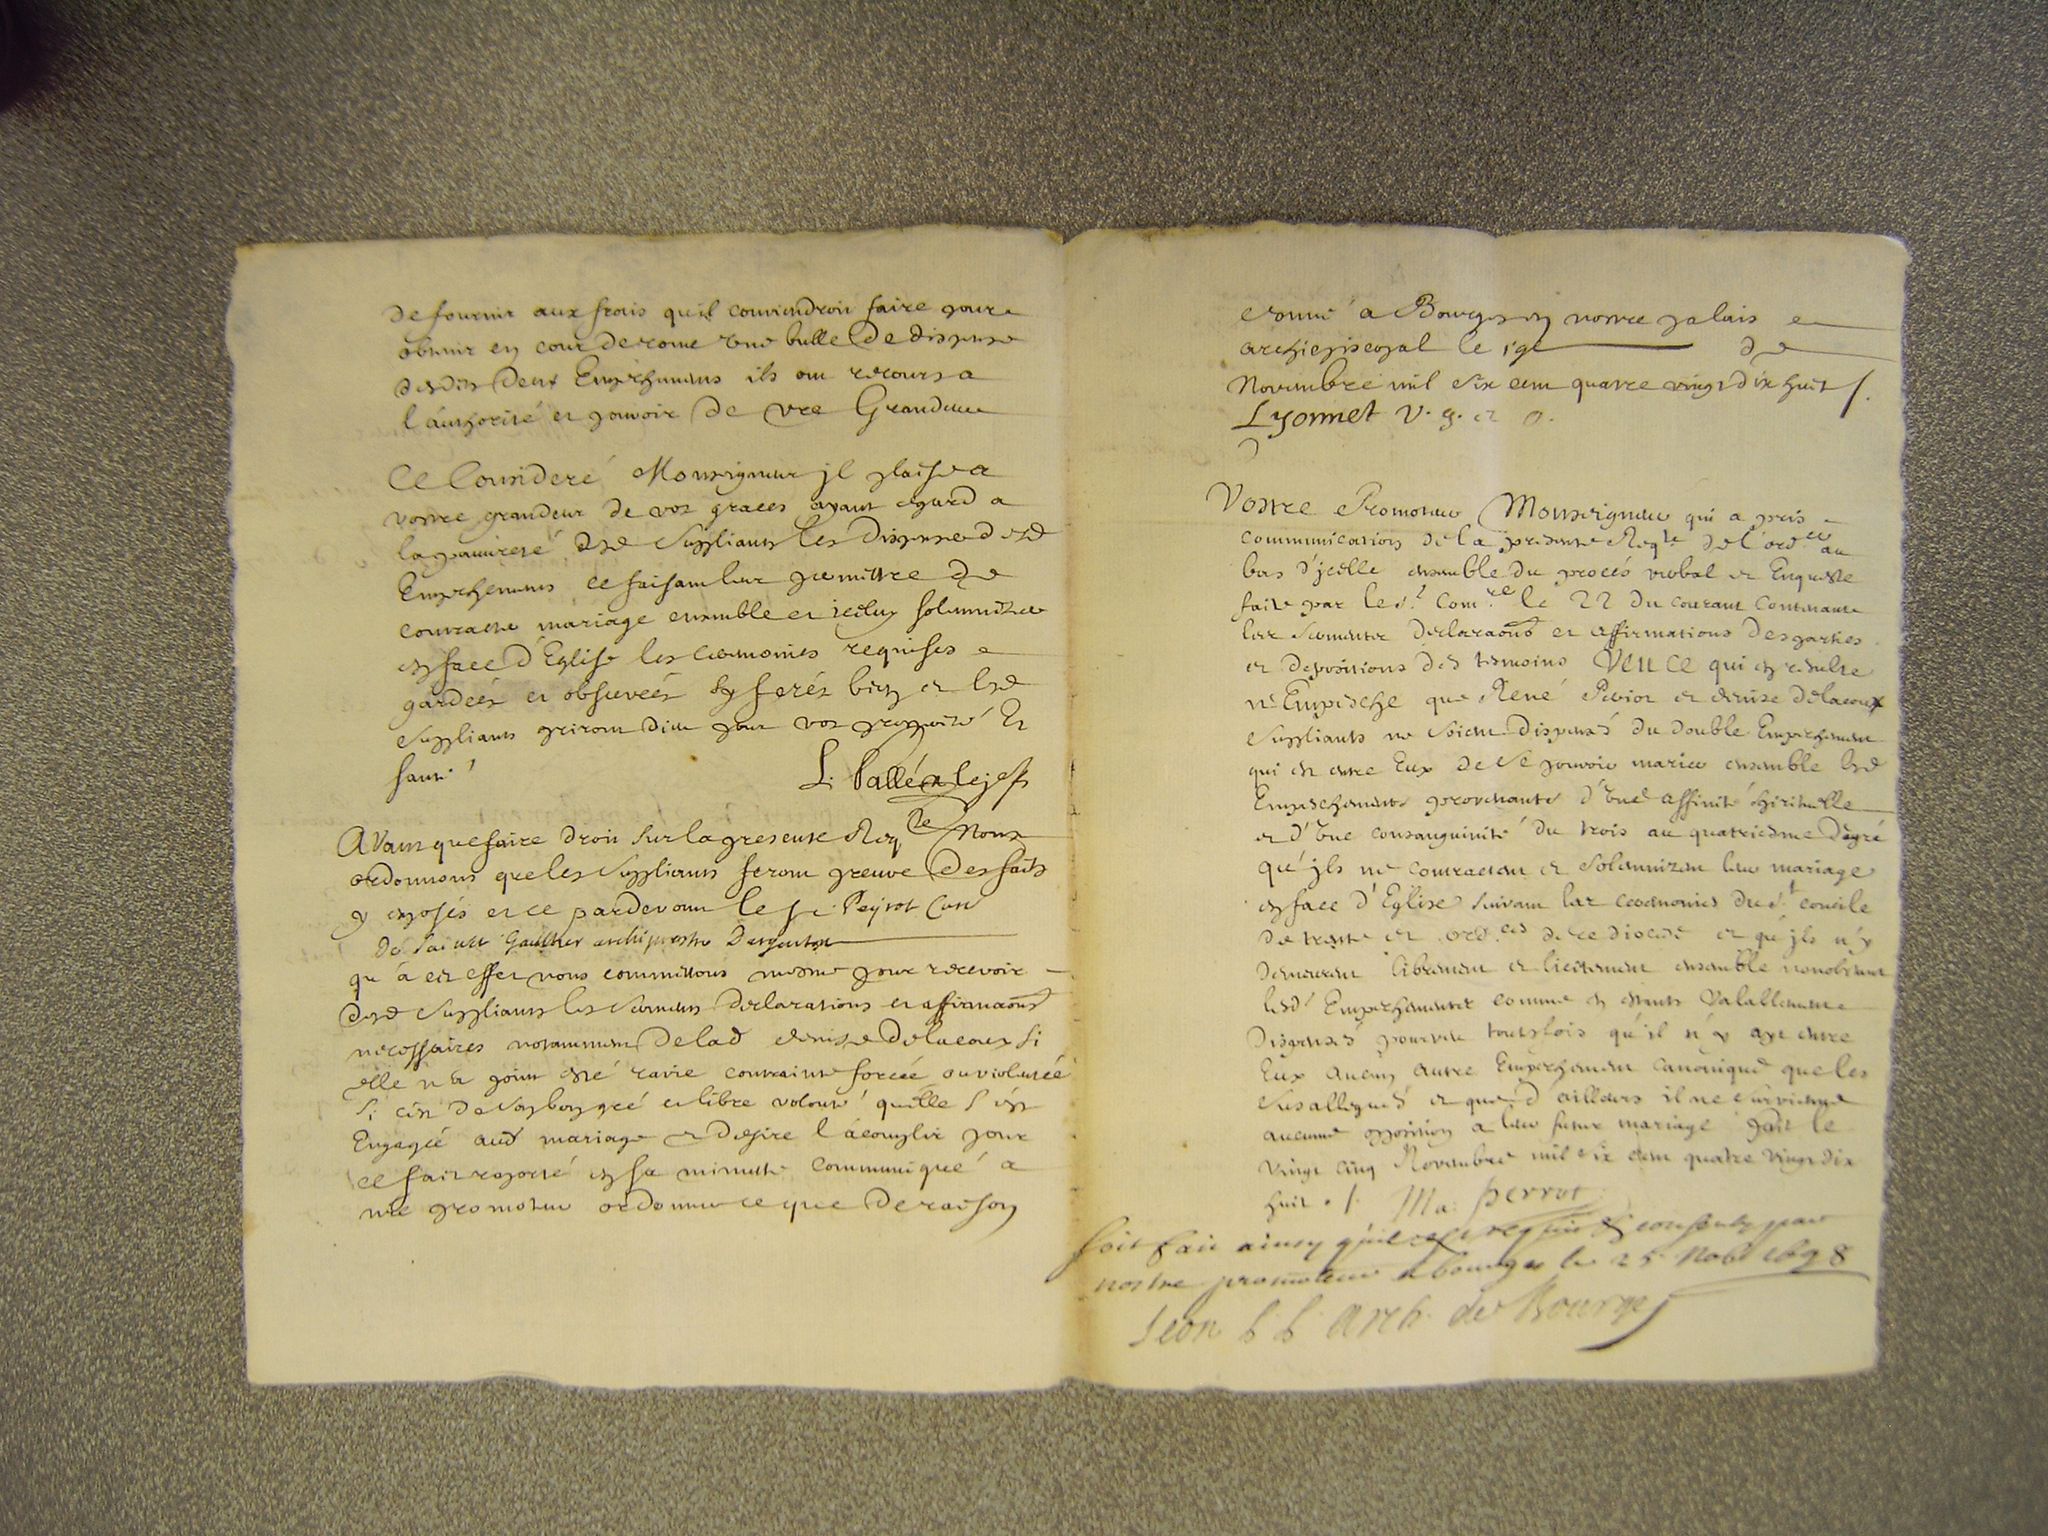 de fournir aux frais qu'il conviendroit faire pour
obtenir en cour de rome une bulle de dispense
desdits deux Empechemens ils ont recours a
l'authorité et pouvoir de vre Grandeur
Ce Consideré Monseigneur jl plaise a
vostre grandeur de vos graces ayant egard a
la pauvreté desd Suppliants les dispenser desd
Empechemens ce faisant leur permettre de
contracter mariage ensemble et iceluy solemnizer
en face d'Eglise les ceremonies requises
gardeés et observeés sy ferés bien et lesd
Suppliants priront dieu pour vos prosperité Et
santé
L. Pallé
Avant que faire droit sur la presente Reqte Nous
ordonnons que les Suppliants feront preuve des faits
y exposés et ce pardevant le Sr Peyrot Curé
de Saint Gaultier archiprestre Dargenton
qu'a cet effet nous commettons mesme pour recevoir
desd Suppliants les serments declarations et affirmaons
necessaires notamment de lad denise delacoux si
elle n'a point esté ravie contrainte forcée ou violentée
si c'est de son bon gré et libre volonté qu'elle s'est
Engagée aud mariage et desire l'acomplir pour
ce fait raporté en sa minutte communiqué a
nre promoteur ordonner ce que de raison
donné a Bourges en nostre palais
archiepiscopal le 19e de
Novembre mil six cent quatre vingt dix huit /.
Lyonnet v. g. et o.
Vostre Promoteur Monseigneur qui a pris
communication de la presente Reqte de l'ordce au
bas d'jcelle ensemble du procés verbal et Enqueste
faite par led. Comre le 22 du courant Contenante
les serments declaraons et affirmations des parties
et depositions des temoins Veu Ce qui en resulte
n'Empesche que René Perior et denise delacoux
Suppliants ne soient dispensés du double Empechement
qui est entre Eux de se pouvoir marier ensemble lesd
Empeschements provenants d'une affinité spirituelle
et d'une consanguinité du trois au quatriesme degré
qu'jls ne contractent et solemnizent leur mariage
en face d'Eglise suivant les ceremonies du st concile
de trente et ordces de ce diocese et qu'jls n'y
demeurent librement et licitement ensemble nonobstant
lesd Empechements comme en estants Valablement
dispensés pourveu toutefois qu'il n'y aye entre
Eux aucun autre Empechement canonique que les
susallegués et que d'ailleurs il ne survienne
aucune opposition a leur futur mariage fait le
vingt cinq Novembre mil six cent quatre vingt dix
huit ./. Ma: Perrot
soit fait ainsy qu'il est requis et consenty par
nostre promoteur a bourges le 25 Nobre 1698
Leon P. P. Arch. de Bourges